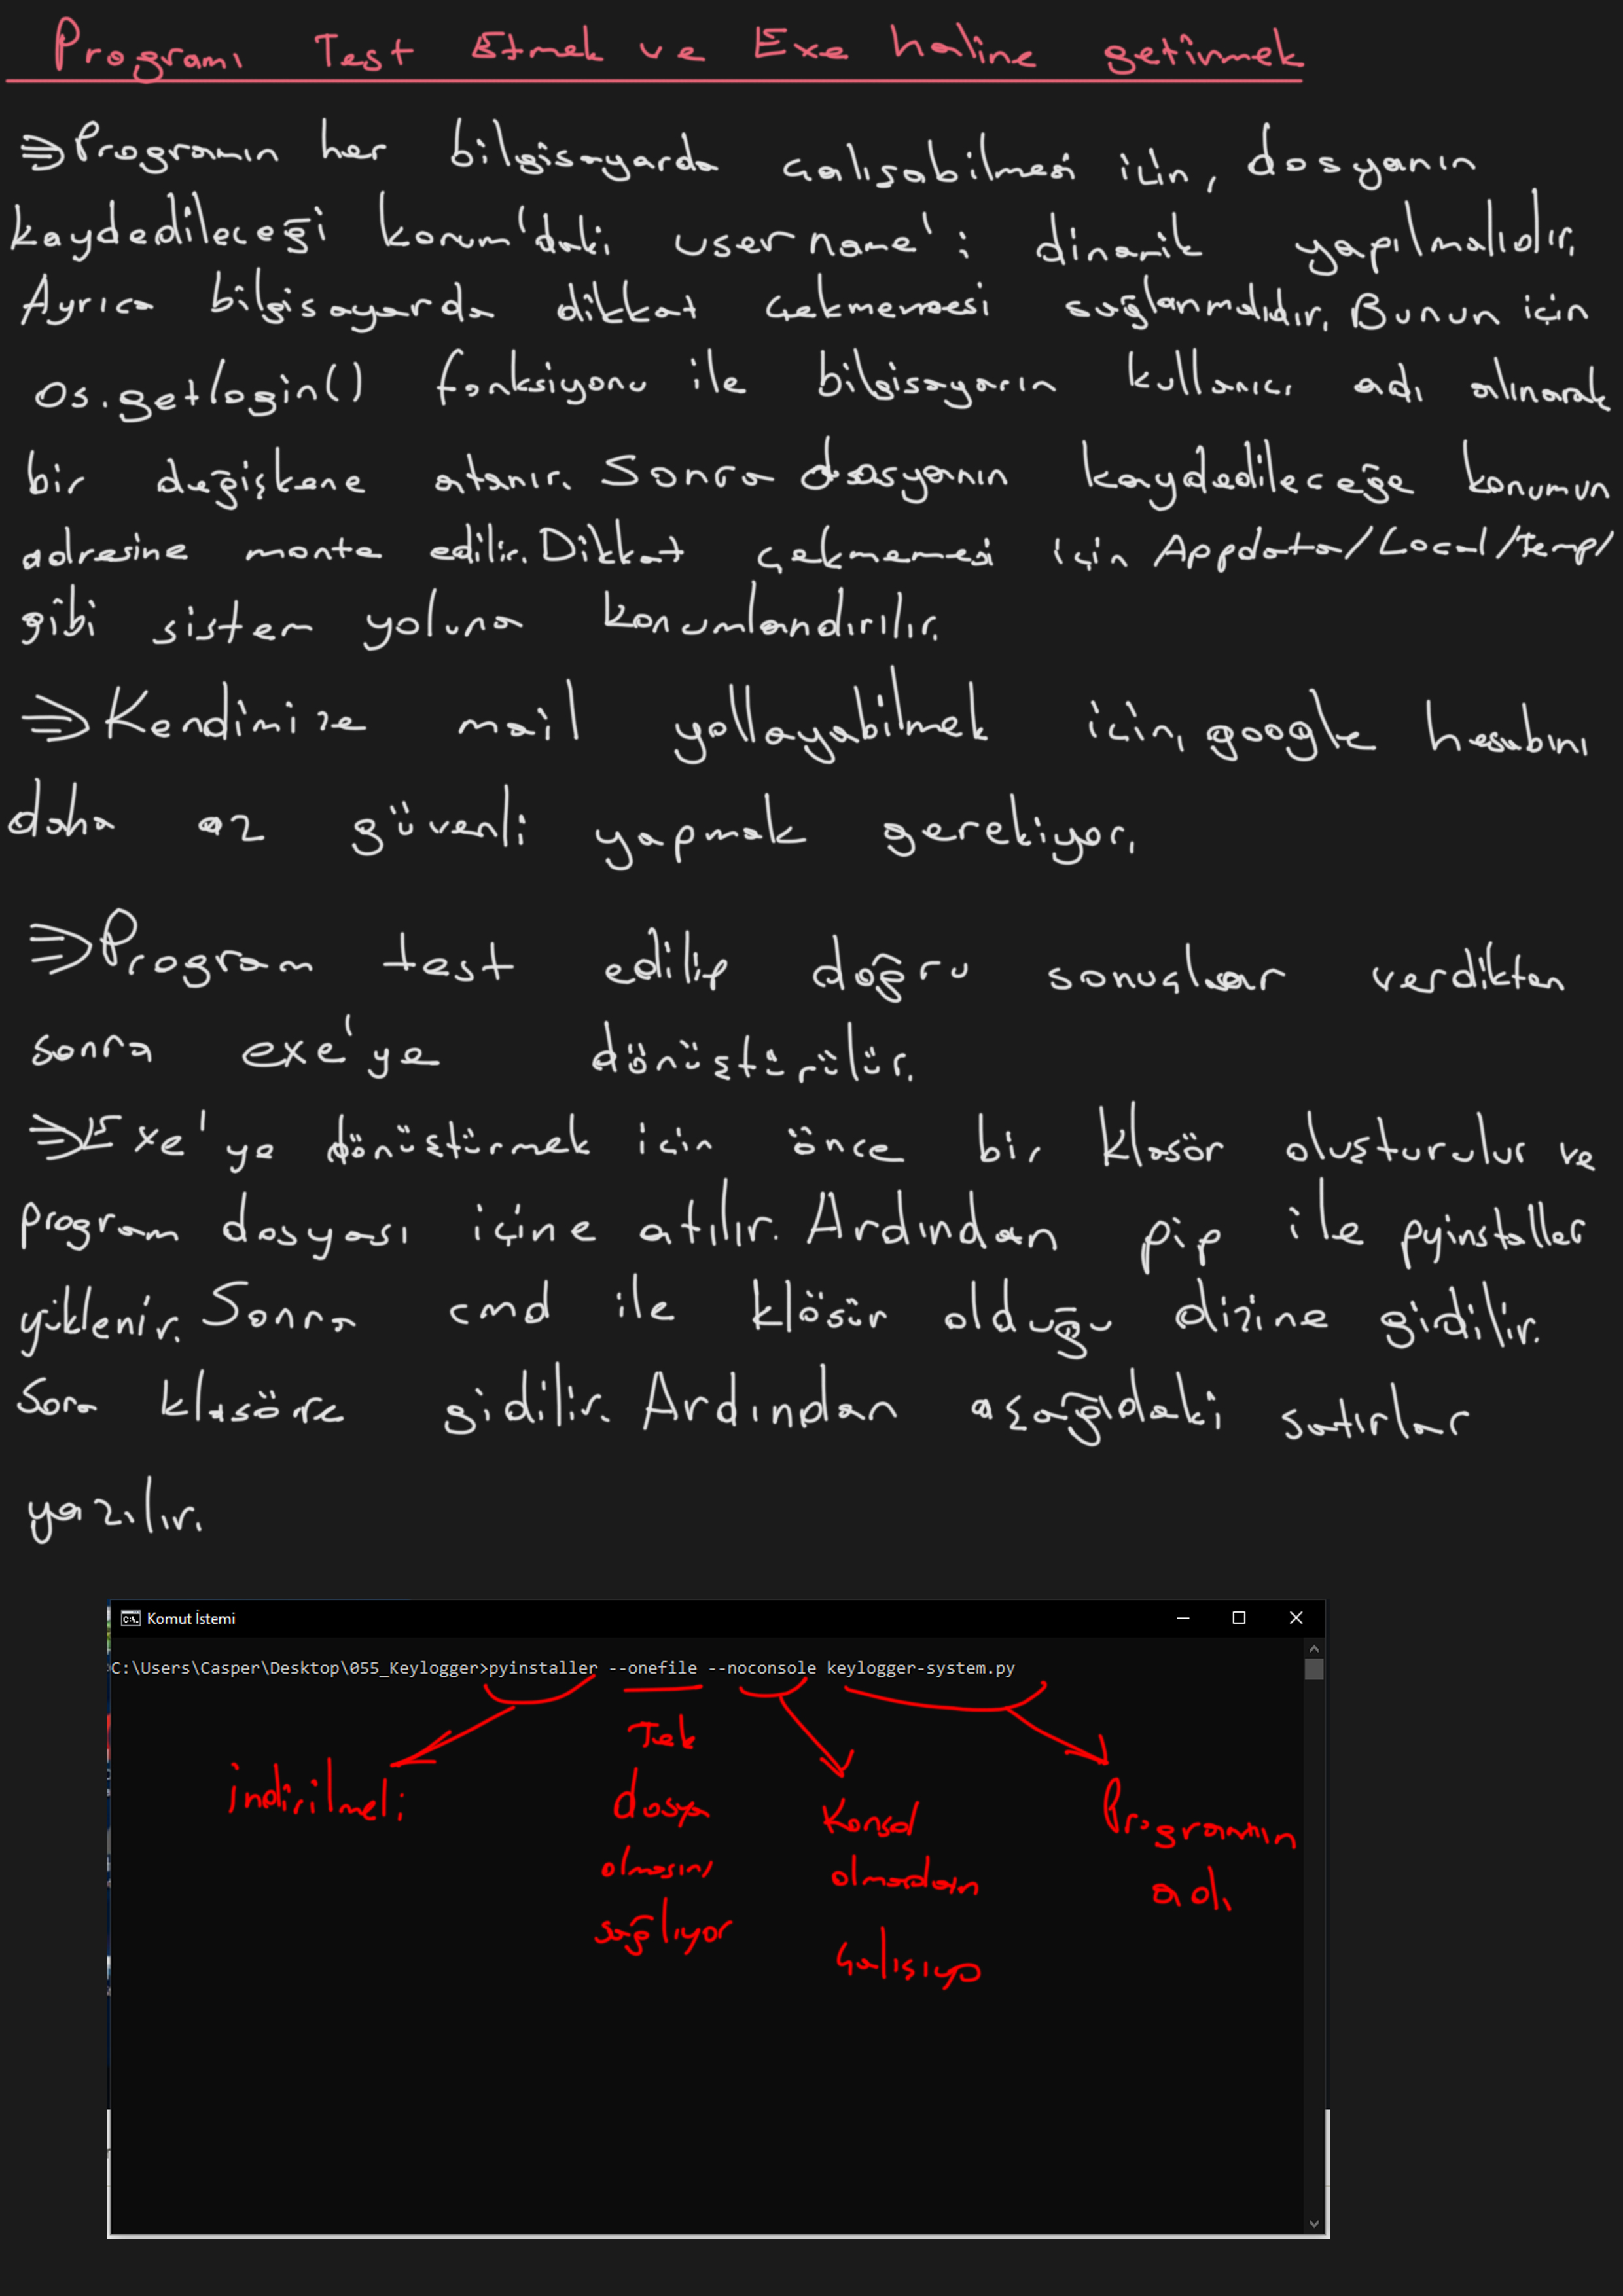 Programı Test Etmek ve Exe haline getirmek
⇒Programın her bilgisayarda çalışabilmesi için, dosyanın
kaydedileceği konum'daki username'i dinamik yapılmalıdır.
Ayrıca bilgisayarda dikkat çekmemesi sağlanmalıdır. Bunun için
os.getlogin() fonksiyonu ile bilgisayarın kullanıcı adı alınarak
bir değişkene atanır. Sonra dosyanın kaydedileceğe konumun
adresine monte edilir. Dikkat çekmemesi için Appdata/Local/Temp/
gibi sistem yoluna konumlandırılır.
⇒Kendimize mail yollayabilmek için, google hesabını
daha az güvenli yapmak gerekiyor.
⇒Program test edilip doğru sonuçlar verdikten
sonra exe'ye dönüştürülür.
⇒Exe'ye dönüştürmek için önce bir klasör oluşturulur ve
program dosyası içine atılır. Ardından pip ile pyinstaller
yüklenir. Sonra cmd ile klösür olduğu dizine gidilir.
Sora klasöre gidilir. Ardından aşağıdaki satırlar
yazılır.
Komut İstemi
C:\Users\Casper\Desktop\055_Keylogger>pyinstaller --onefile --noconsole keylogger-system.py
indirilmeli
Tek
dosya
olmasını
sağlıyor
Konsol
olmadan
çalışıyo
Programın
adı